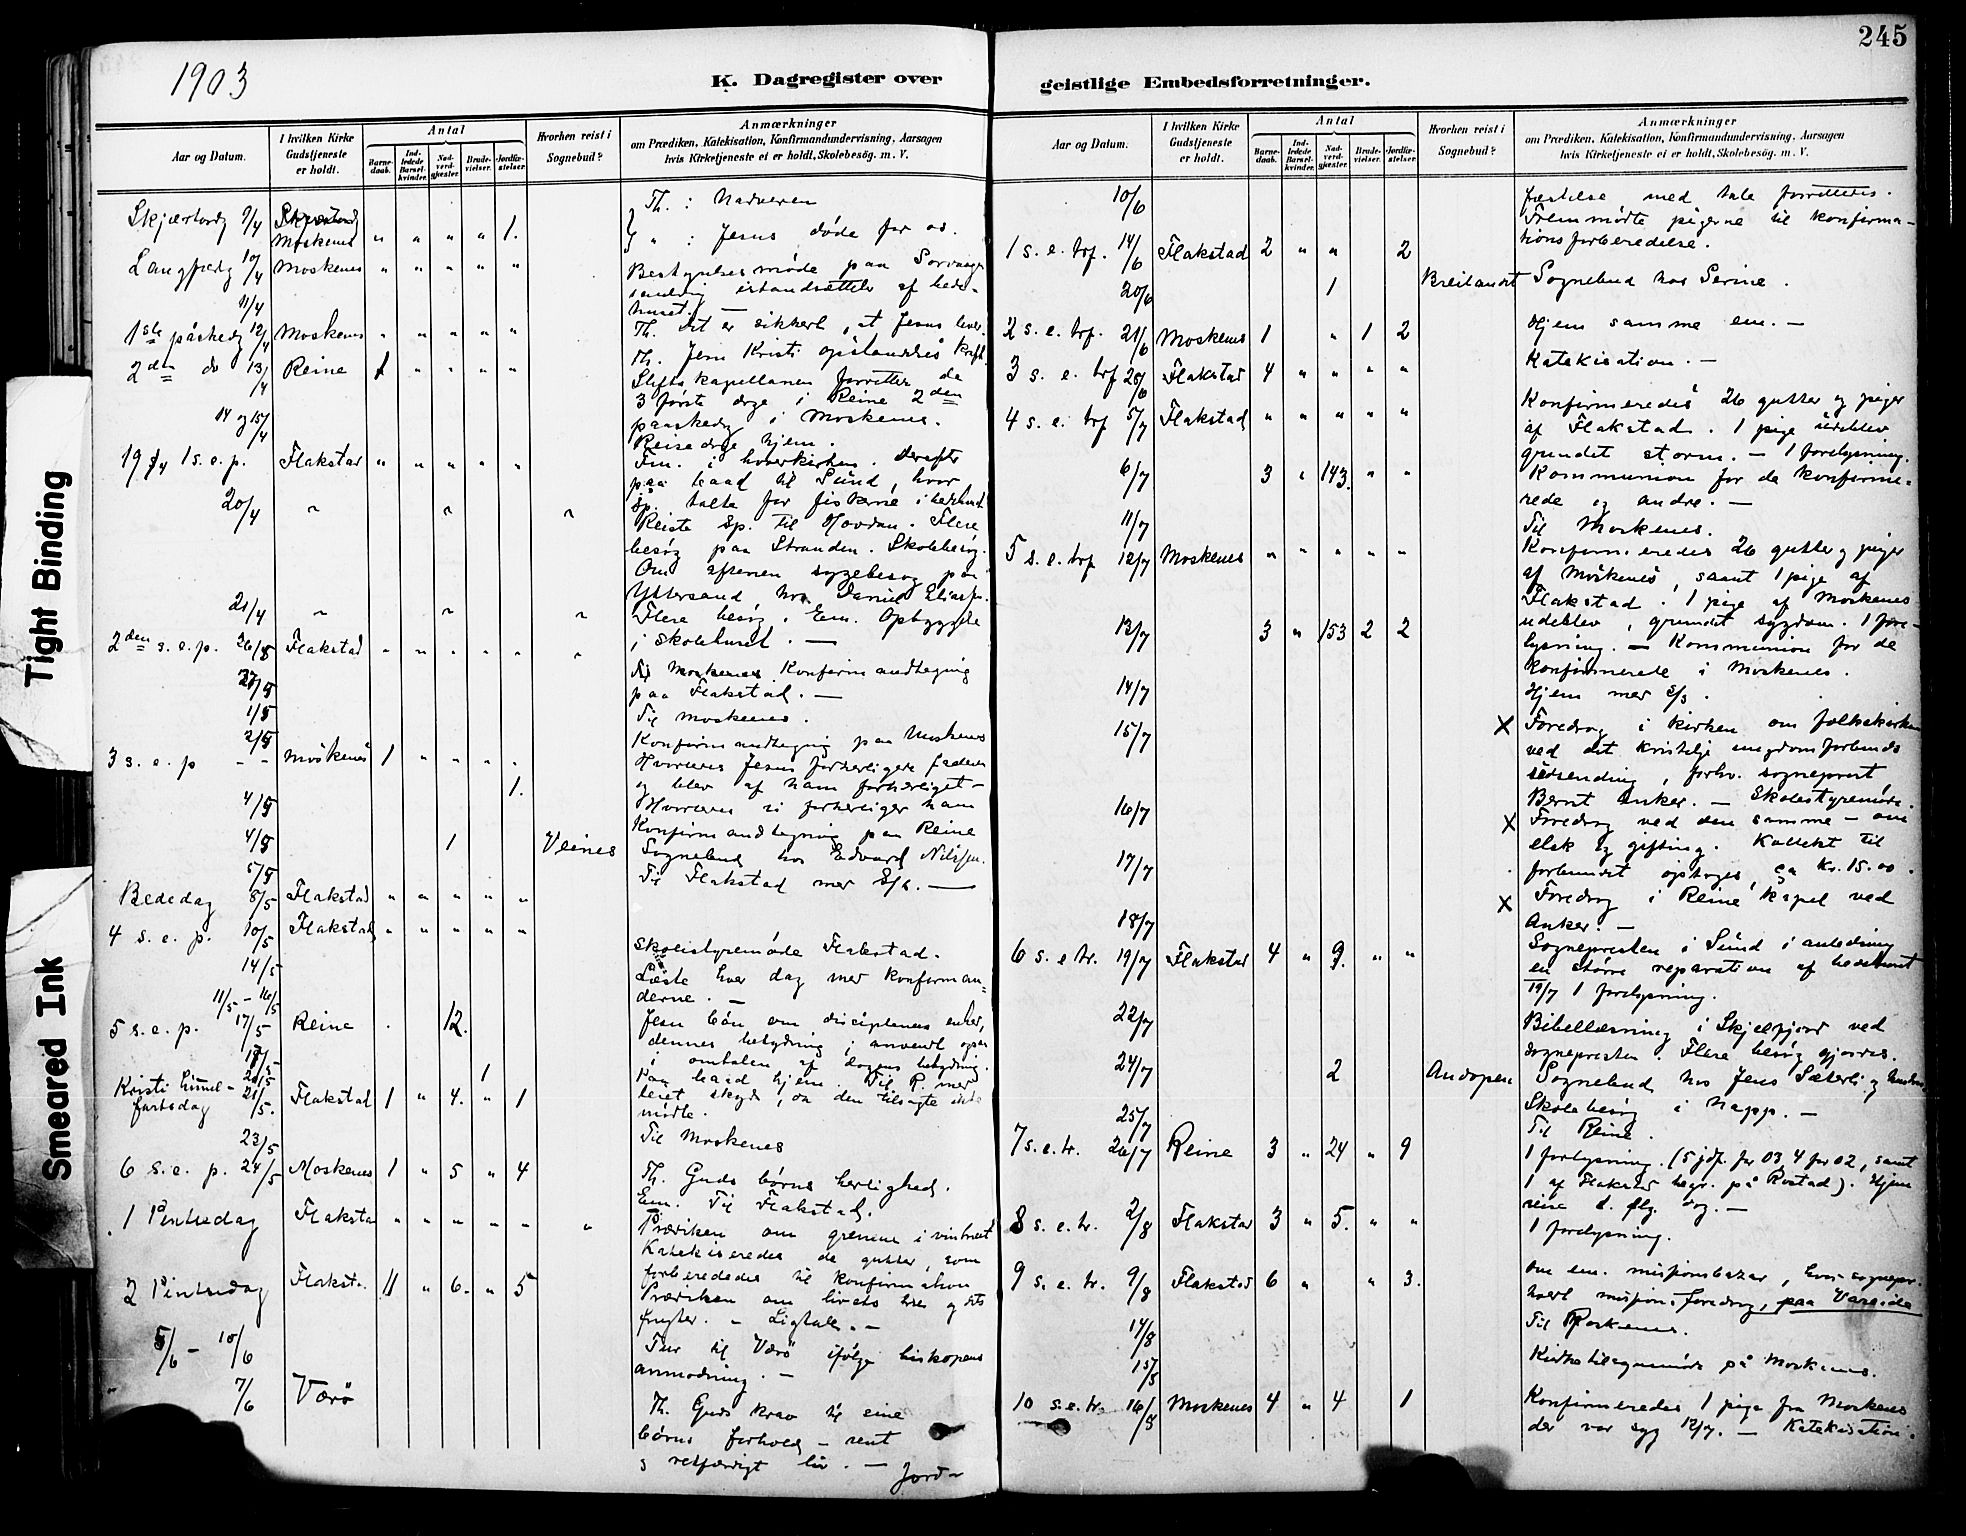 245
1903
K. Dagregister over
geistlige Embedsforretninger.
Aar og Datum.
I hvilken Kirke
Gudstjeneste
er holdt.
Antal
Barne-
daab.
Ind-
ledede
Barsel-
kvinder.
Nad-
verd-
gjæster.
Brude-
vielser.
Jordfæ-
stelser.
Hvorhen reist i
Sognebud?
Anmærkninger
om Prædiken, Katekisation, Konfirmandundervisning, Aarsagen
hvis Kirketjeneste ei er holdt, Skolebesøg. m. V.
Skjærtordg 9/4 Moskenes " " " " 1.
Th. : Nadveren
" : Jesus døde for os.
Langfredg 10/4 Moskenes " " " " "
11/4 Bestyrelsesmøde paa Sorvaagen
istandsættelse af bede-
huset. —
1ste påskedg 12/4 Moskenes " " " " "
Th. Det er sikkert, at Jesus lever.
2den do 13/4 Reine 1 " " " "
Th. Jesu Kristi opstandelses kraft.
Stiftskapellanen forretter de
3 første dage i Reine 2den
paaskedg i Moskenes.
14 og 15/4 Reisedage hjem.
19/4 1 s. e. p. Flakstad " " " " "
Fm. i hovedkirken. Derefter
paa baad til Sund, hvor
sp. talte for fiskerne i bedehuset
20/4 " " "
Reiste sp. til Hovdan. Flere
besøg paa Stranden. Skolebesøg.
Om aftenen sygebesøg paa
Yttersand hos Daniel Eliasen.
21/4 " " "
Flere besøg. Em. Opbyggelse
i skolehuset. —
2den s. e. p. 26/4 Flakstad " " " " " "
Konfirmandtegning
paa Flakstad. —
1/5 Til Moskenes.
2/5 Konfirmandtegning paa Moskenes
3 s. e. p - - Moskenes 1 " " " "
Hvorledes Jesus forherligede faderen
1.
og blev af ham forherliget —
Hvorledes vi forherliger ham
4/5 Konfirmandtegning paa Reine
4/5 1 Veines Sognebud hos Edvard Nilssen.
5/5 Til Flakstad med
Bededag 8/5 Flakstad " " " " "
4 s. e. p. 10/5 Flakstad " " " " "
14/5 Skolestyremøde Flakstad.
11/5 - 16/5 Læste hver dag med konfirman-
derne. —
5 s. e. p. 17/5 Reine . 12.
Jesu bøn om disciplenes enhed,
dennes betydning, anvendt også
i omtalen af dagens betydning.
1
Paa baad hjem. Til R. med
Kristi himmel-
fartsdag 21/5. Flakstad 1 " 4. " 1
leiet skyds, da den tilsagte ikke
mødte.
23/5 Til Moskenes
6 s. e. p. 24/5 Moskenes 1 " 5 " 4
Th. Guds børns herlighed.
Em. Til Flakstad.
1 Pintsedag Flakstad " " " " " "
Prædiken om grenene i vintreet
Katekiseredes de gutter, som
forberededes til konfirmation
2 Pintsedag Flakst. 11 " 6. " 5
Prædiken om livets træ og dets
frugter. - Ligtale. -
5/6 - 10/6 Tur til Værø ifølge biskopens
anmodning. —
7/6 Værø
Th. Guds krav til sine
børns forhold — sent
retfærdigt liv. — Jord-
Aar og Datum.
I hvilken Kirke
Gudstjeneste
er holdt.
Antal
Barne-
daab.
Ind-
ledede
Barsel-
kvinder.
Nad-
verd-
gjæster.
Brude-
vielser.
Jordfæ-
stelser.
Hvorhen reist i
Sognebud?
Anmærkninger
om Prædiken, Katekisation, Konfirmandundervisning, Aarsagen
hvis Kirketjeneste ei er holdt, Skolebesøg. m. V.
10/6 fæstelse med tale forrettedes.
Fremmødte pigerne til konfirma-
tionsforberedelse.
1 s. e. trf. 14/6 Flakstad 2 " " 2
20/6 1 Breilandet Sognebud hos Serine.
2 s. e. trf. 21/6 Moskenes 1 " 1 2 Hjem samme em. —
3 s. e. trf 28/6 Flakstad 4 " " " " Katekisation. —
4 s. e. trf 5/7 Flakstad " " " " "
Konfirmeredes 26 gutter og piger
af Flakstad. 1 pige udeblev
grundet storm. — 1 forelysning.
6/7 3 " 143. " "
Kommunion for de konfirme-
rede og andre. —
11/7 Til Moskenes.
5 s. e. trf 12/7 Moskenes " " " " "
Konfirmeredes 26 gutter og piger
af Moskenes, samt 1 pige af
Flakstad. 1 pige af Moskenes
udeblev, grundet sygdom. 1 fore-
lysning. —
13/7 3 " 153 2 2
Kommunion for de
konfirmerede i Moskenes.
14/7 Hjem med
15/7 x Foredrag i kirken om folkekirken
ved det kristelige ungdomsforbunds
udsending, forhv. sogneprest
Bernt Anker. — Skolestyremøde.
16/7 x Foredrag ved den samme — om
elsk og gifting. Kollekt til
forbundet optoges, ca kr. 15.00.
17/7 x Foredrag i Reine kapel ved
Anker. —
18/7 Sognepresten i Sund i anledning
en større reparation af bedehuset
6 s. e tr. 19/7 Flakstad 4 " 9. " "
19/7 1 forelysning.
22/7 Bibellæsning i Skjelfjord ved
sognepresten. Flere besøg gjordes.
24/7 2 Andopen Sognebud hos Jens Sæterli og hustru
Skolebesøg i Napp. —
25/7 Til Reine.
7 s. e. tr. 26/7 Reine 3 " 24 " 9
1 forelysning. (5 jdf. for 03, 4 for 02, samt
1 af Flakstad begr. på Rostad). Hjem
reise d. flg. dag. —
8 s. e. tr. 2/8 Flakstad 3 " 5. " "
1 forelysning.
9 s. e. tr. 9/8 Flakstad 6 " " 3.
Om em. missionsbazar, hvor sognepr.
holdt missionsforedrag, paa Vareide
14/8 Til Moskenes.
15/8 Kirketilsynsmøde på Moskenes.
10 s. e. tr. 16/8 Moskenes 4 " 4 1
Konfirmeredes 1 pige fra Moskenes
der var syg 12/7. — Katekisation.
Tight Binding
Smeared Ink